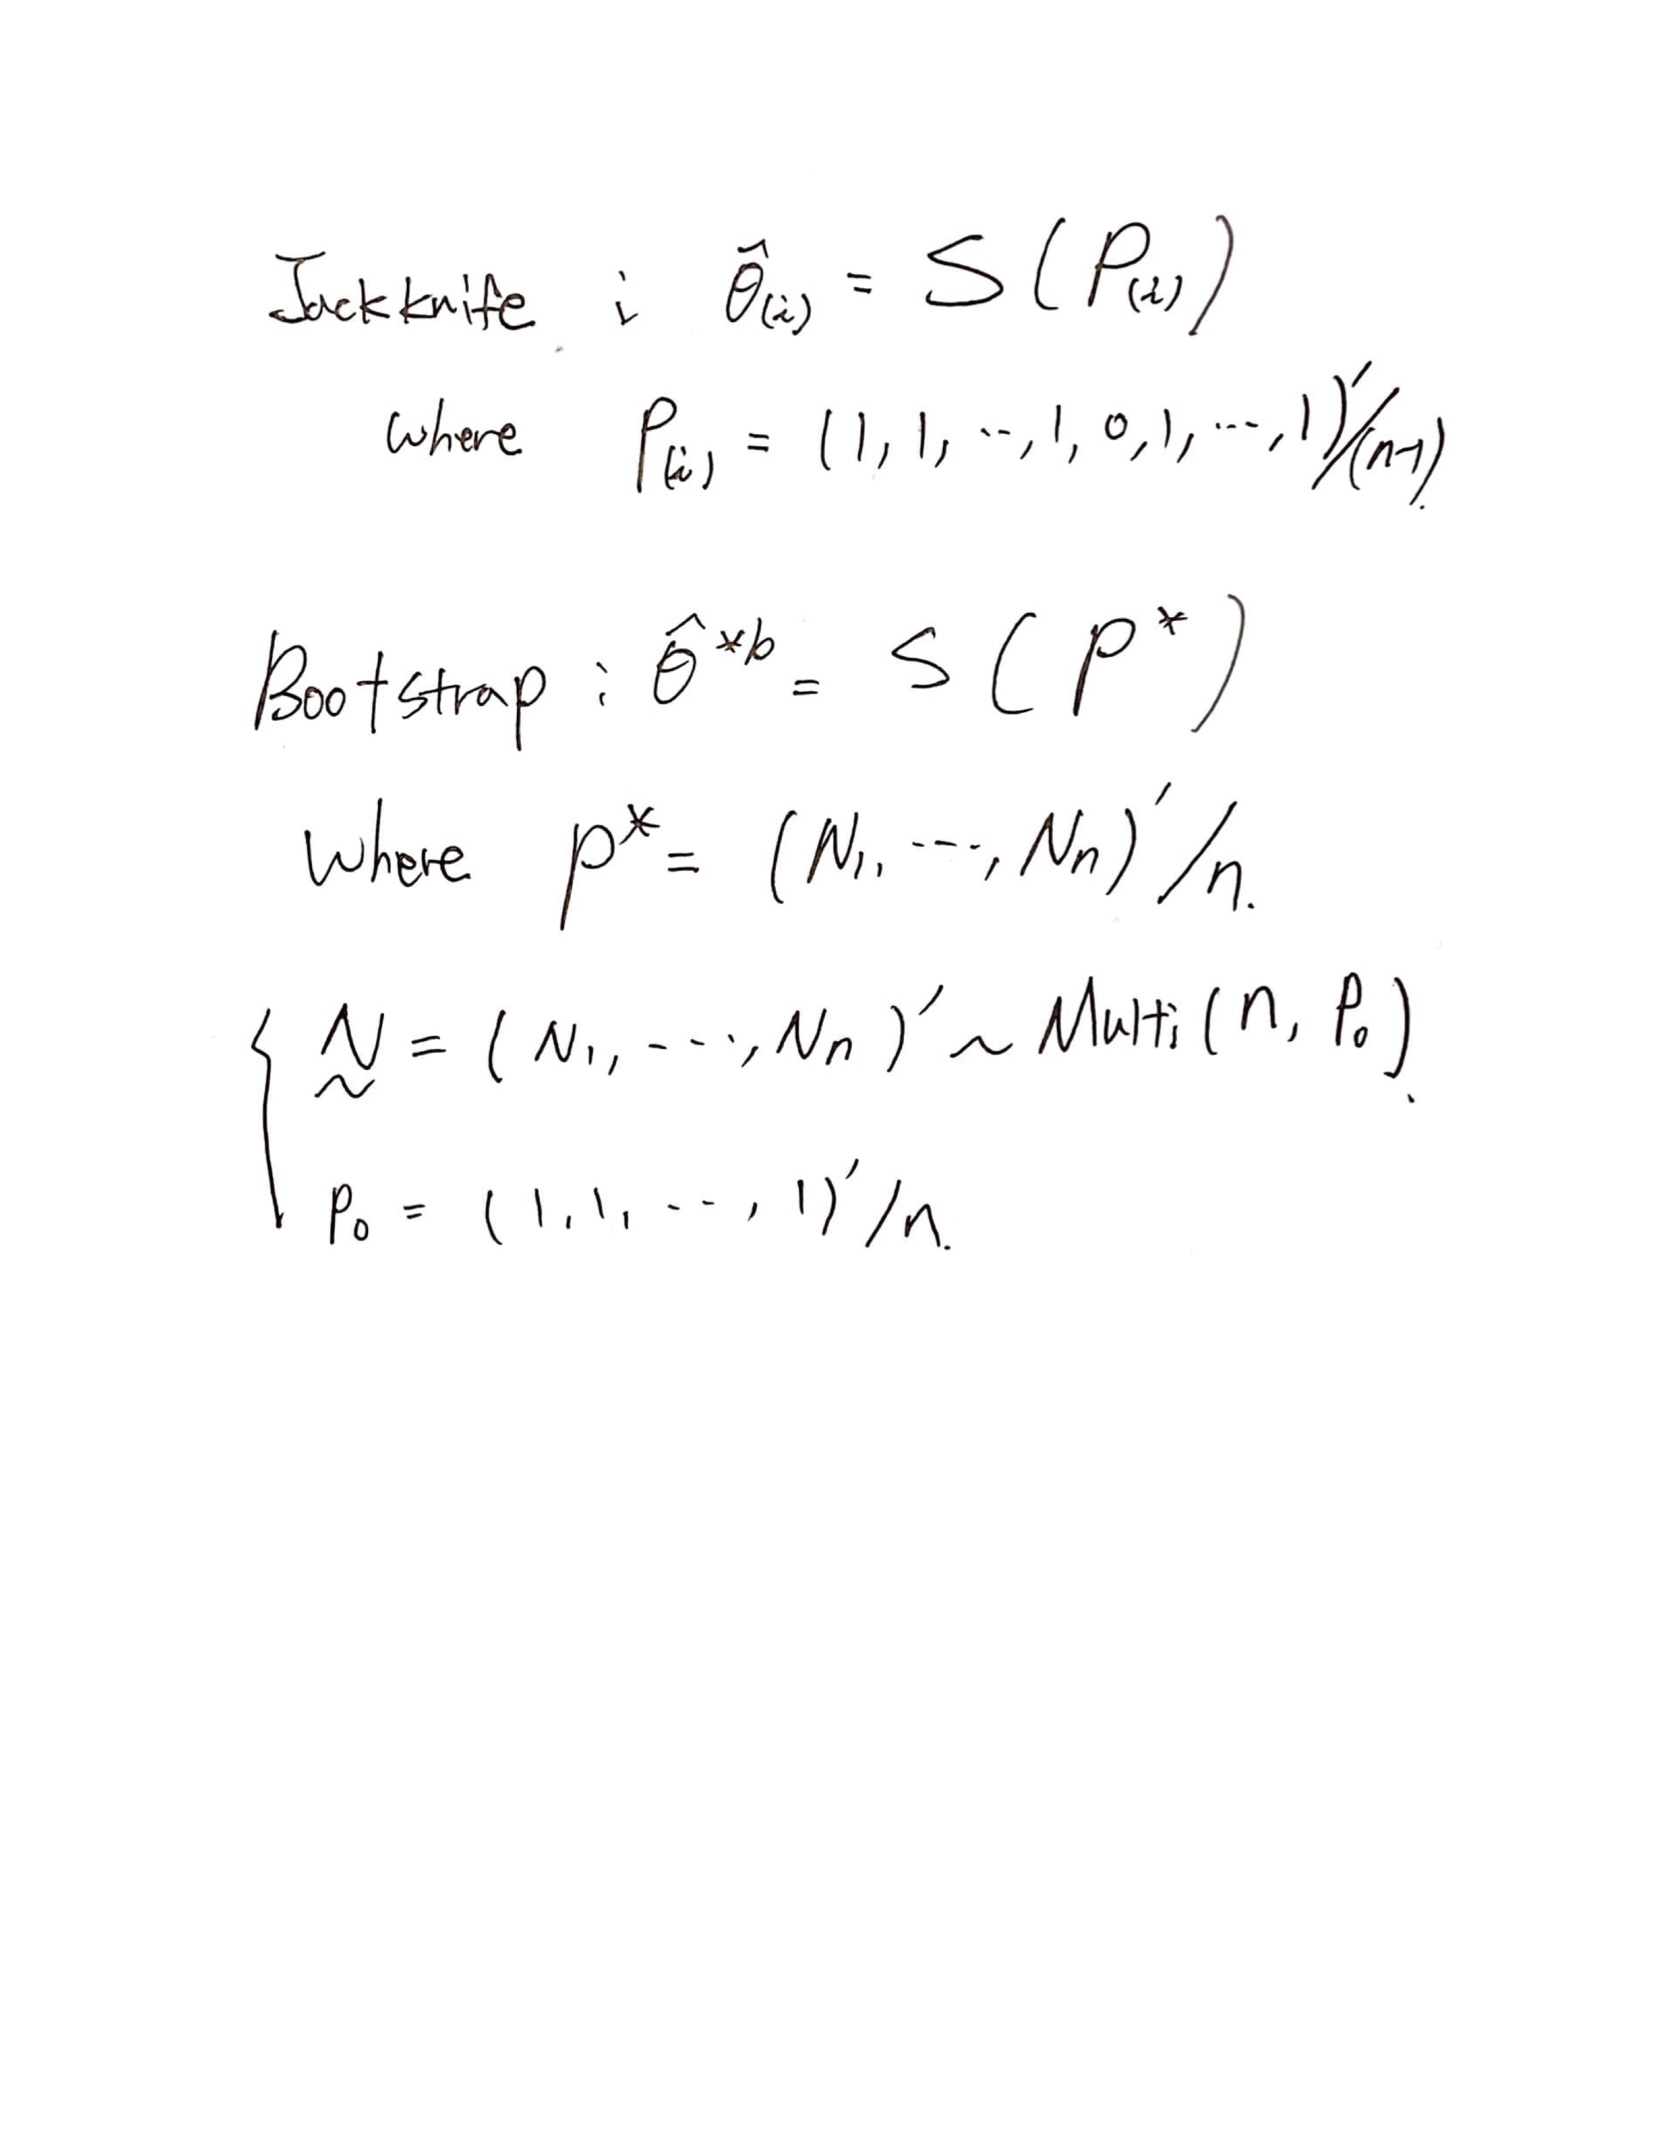 Jackknife : θ̂(i) = S(P(i))
where P(i) = (1, 1, ..., 1, 0, 1, ..., 1)'/(n-1).
Bootstrap : θ̂*b = S(P*)
where P* = (N1, ---, Nn)'/n.
N = (N1, ---, Nn)' ~ Multi(n, P0).
P0 = (1, 1, ---, 1)'/n.